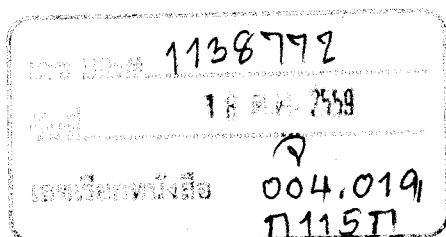 1138772
18 ต.ค. 2559
วันที่
จ
เลขเรียกหนังสือ 004.019
ก115ก